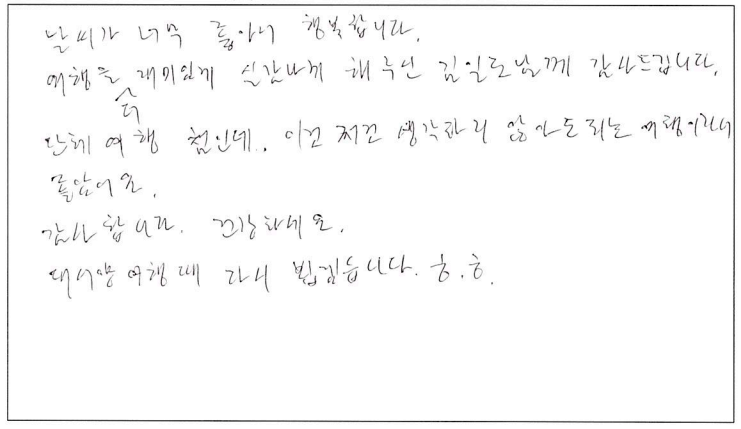 날씨가 너무 좋아서 행복합니다.
여행을 더 재미있게 실감나게 해주신 김일도님께 감사드립니다.
단체 여행 첨인데.. 이건 저건 생각하지 않아도 되는 여행이라서
좋았어요.
감사합니다. 건강하세요.
대서양 여행때 다시 뵙겠습니다. ㅎ.ㅎ.